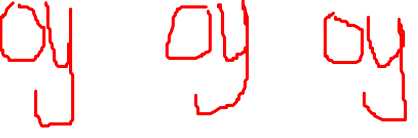 oy oy oy